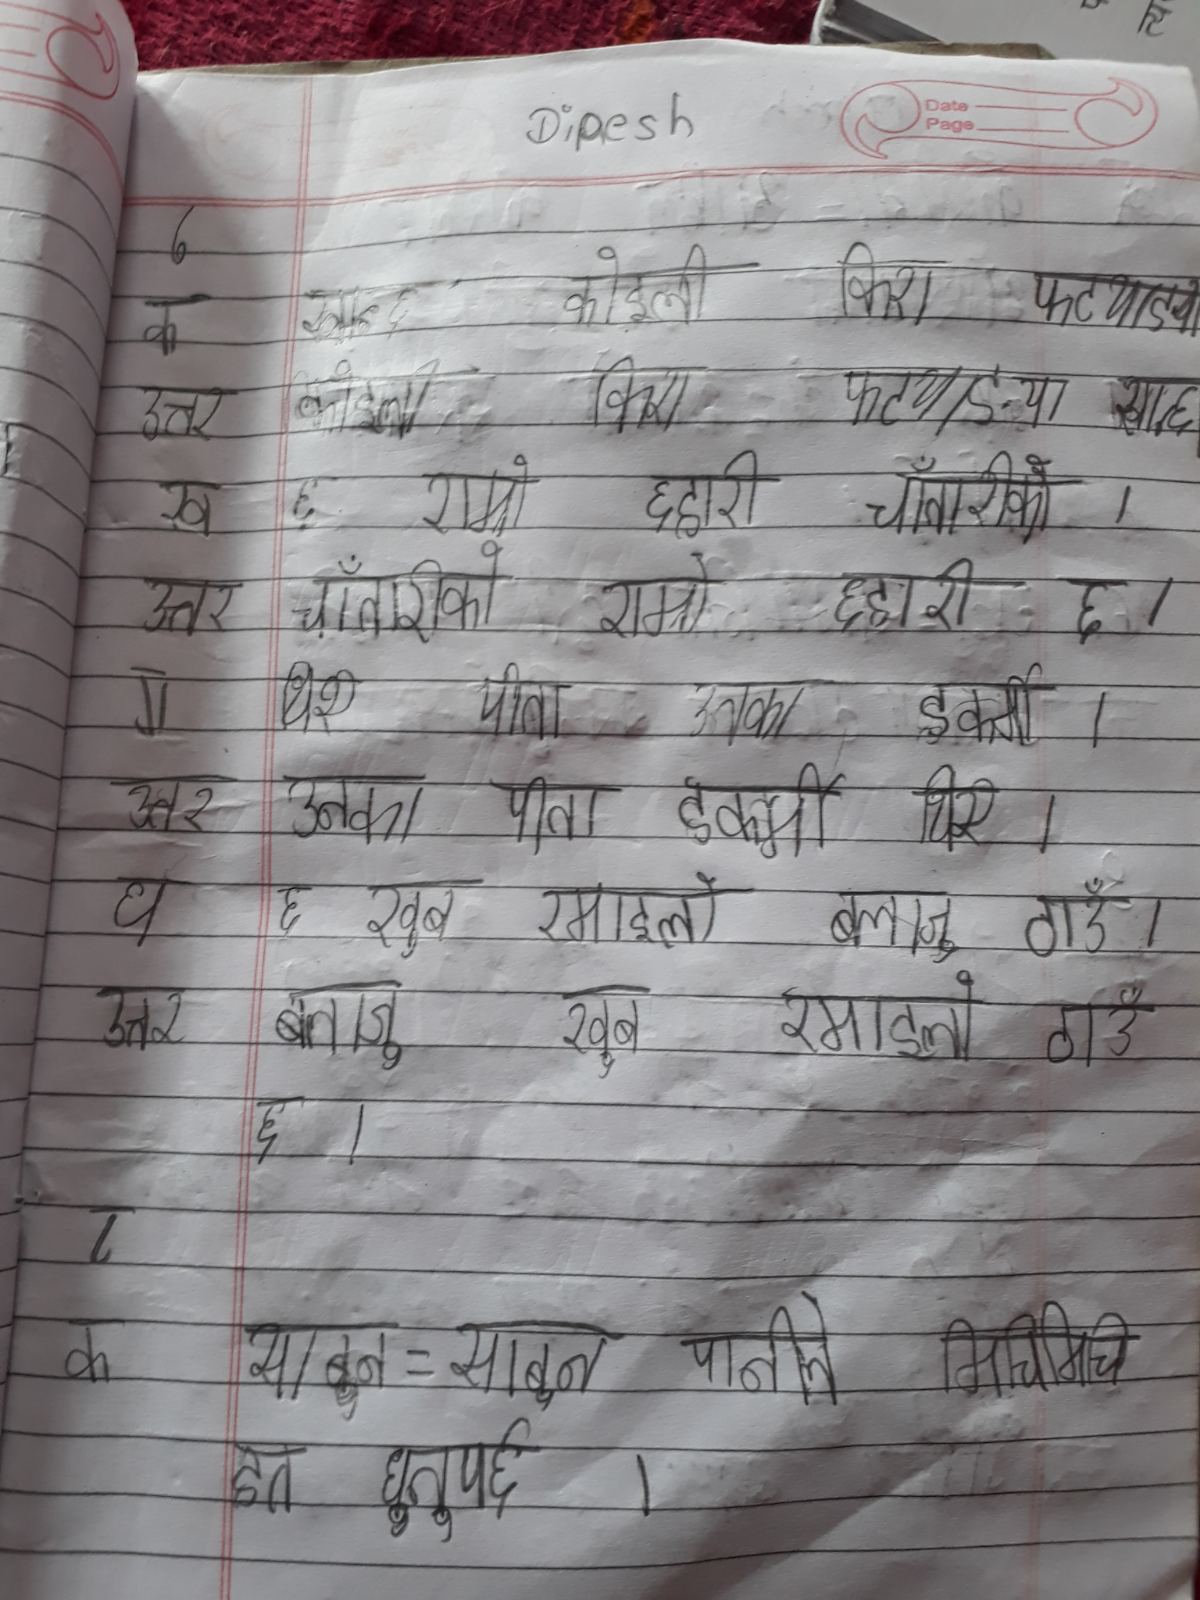 Dipesh
Date
Page
६
क खाहद कोइली किरा फटयाङया
उत्तर कोइली किरा फटयाङया खाद
ख द राम्रो दहारी चौँतारीको ।
उत्तर चौँतारीको राम्रो दहारी द ।
ग थिए पीता उनका डकर्मी ।
उत्तर उनका पीता डकर्मी थिए ।
घ द खुब रमाइलो बलाजु ठाउँ ।
उत्तर बलाजु खुब रमाइलो ठाउँ
द ।
८
क साबुन = साबुन पानीले मिचिमिचि
हत धुनुपर्द ।